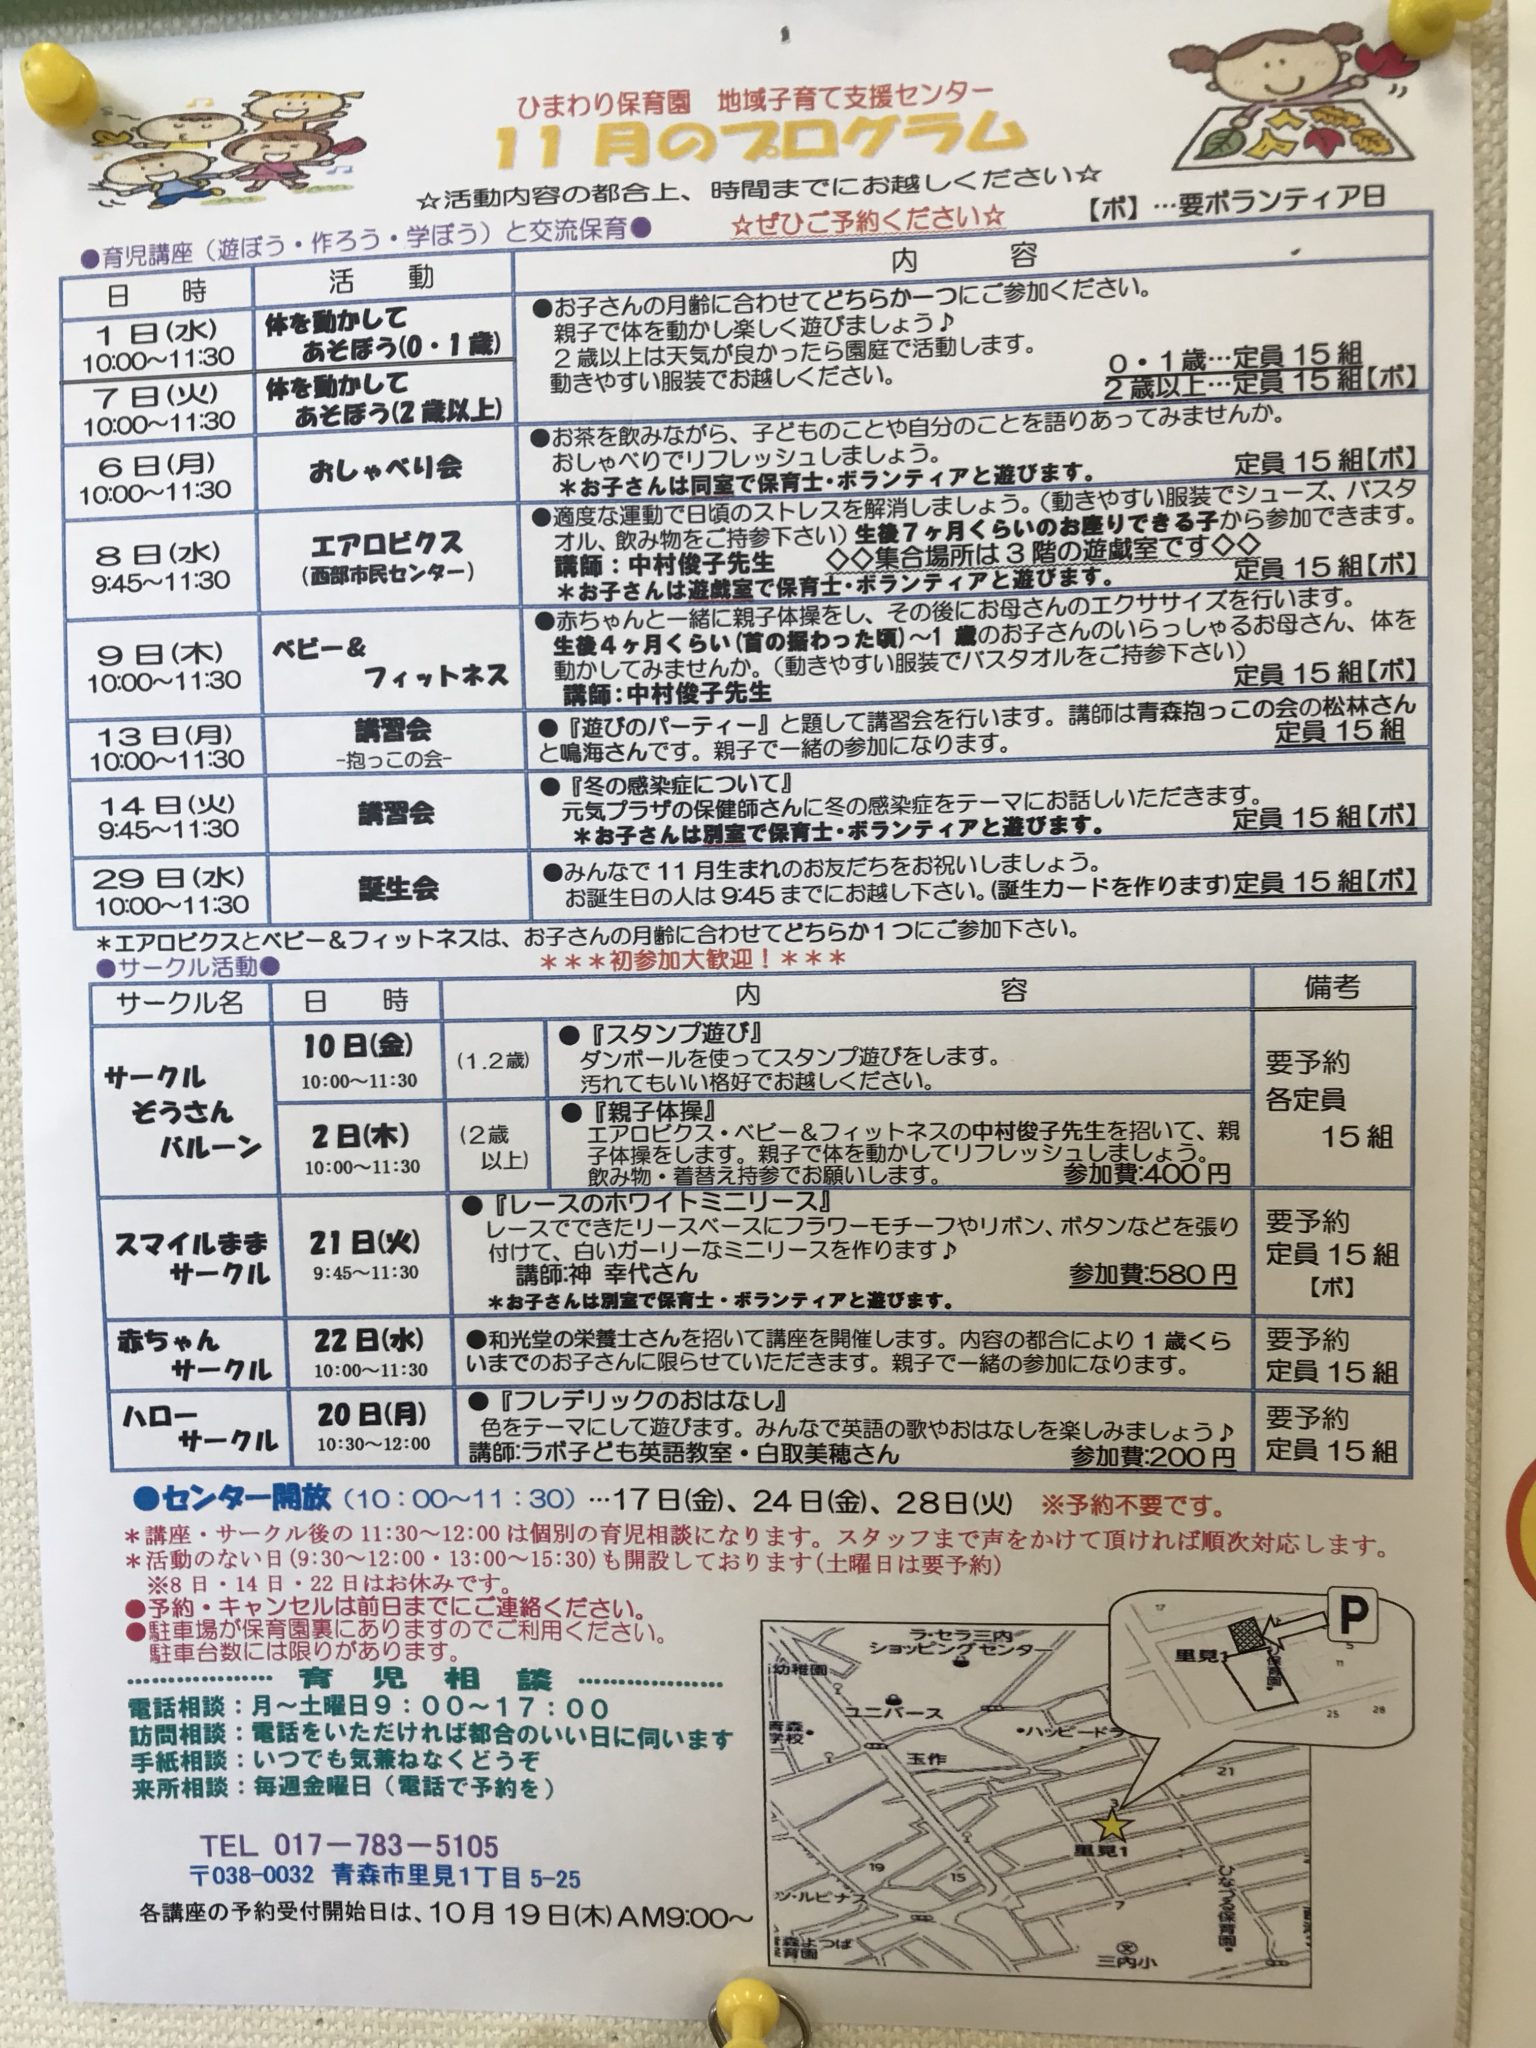 ひまわり保育園　地域子育て支援センター
11月のプログラム
☆活動内容の都合上、時間までにお越しください☆
【ボ】…要ボランティア日
●育児講座（遊ぼう・作ろう・学ぼう）と交流保育●
☆ぜひご予約ください☆
日　時　活　動　内　容
1日(水)
10:00～11:30
体を動かして
あそぼう(0・1歳)
7日(火)
10:00～11:30
体を動かして
あそぼう(2歳以上)
●お子さんの月齢に合わせてどちらか一つにご参加ください。
親子で体を動かし楽しく遊びましょう♪
2歳以上は天気が良かったら園庭で活動します。
動きやすい服装でお越しください。
0・1歳…定員15組
2歳以上…定員15組【ボ】
6日(月)
10:00～11:30
おしゃべり会
●お茶を飲みながら、子どものことや自分のことを語りあってみませんか。
おしゃべりでリフレッシュしましょう。
定員15組【ボ】
＊お子さんは同室で保育士・ボランティアと遊びます。
8日(水)
9:45～11:30
エアロビクス
(西部市民センター)
●適度な運動で日頃のストレスを解消しましょう。（動きやすい服装でシューズ、バスタ
オル、飲み物をご持参下さい）生後7ヶ月くらいのお座りできる子から参加できます。
講師：中村俊子先生　◇◇集合場所は3階の遊戯室です◇◇
＊お子さんは遊戯室で保育士・ボランティアと遊びます。
定員15組【ボ】
9日(木)
10:00～11:30
ベビー＆
フィットネス
●赤ちゃんと一緒に親子体操をし、その後にお母さんのエクササイズを行います。
生後4ヶ月くらい(首の据わった頃)～1歳のお子さんのいらっしゃるお母さん、体を
動かしてみませんか。（動きやすい服装でバスタオルをご持参下さい）
講師：中村俊子先生
定員15組【ボ】
13日(月)
10:00～11:30
講習会
-抱っこの会-
●『遊びのパーティー』と題して講習会を行います。講師は青森抱っこの会の松林さん
と鳴海さんです。親子で一緒の参加になります。
定員15組
14日(火)
9:45～11:30
講習会
●『冬の感染症について』
元気プラザの保健師さんに冬の感染症をテーマにお話しいただきます。
＊お子さんは別室で保育士・ボランティアと遊びます。
定員15組【ボ】
29日(水)
10:00～11:30
誕生会
●みんなで11月生まれのお友だちをお祝いしましょう。
お誕生日の人は9:45までにお越し下さい。(誕生カードを作ります)定員15組【ボ】
＊エアロビクスとベビー＆フィットネスは、お子さんの月齢に合わせてどちらか1つにご参加下さい。
●サークル活動●
＊＊＊初参加大歓迎！＊＊＊
サークル名　日　時　内　容　備考
サークル
ぞうさん
バルーン
10日(金)
10:00～11:30
(1.2歳)
●『スタンプ遊び』
ダンボールを使ってスタンプ遊びをします。
汚れてもいい格好でお越しください。
2日(木)
10:00～11:30
(2歳
以上)
●『親子体操』
エアロビクス・ベビー＆フィットネスの中村俊子先生を招いて、親
子体操をします。親子で体を動かしてリフレッシュしましょう。
飲み物・着替え持参でお願いします。　参加費:400円
要予約
各定員
15組
スマイルまま
サークル
21日(火)
9:45～11:30
●『レースのホワイトミニリース』
レースでできたリースベースにフラワーモチーフやリボン、ボタンなどを張り
付けて、白いガーリーなミニリースを作ります♪
講師:神 幸代さん　参加費:580円
＊お子さんは別室で保育士・ボランティアと遊びます。
要予約
定員15組
【ボ】
赤ちゃん
サークル
22日(水)
10:00～11:30
●和光堂の栄養士さんを招いて講座を開催します。内容の都合により1歳くら
いまでのお子さんに限らせていただきます。親子で一緒の参加になります。
要予約
定員15組
ハロー
サークル
20日(月)
10:30～12:00
●『フレデリックのおはなし』
色をテーマにして遊びます。みんなで英語の歌やおはなしを楽しみましょう♪
講師:ラボ子ども英語教室・白取美穂さん　参加費:200円
要予約
定員15組
●センター開放（10：00～11：30）…17日(金)、24日(金)、28日(火)　※予約不要です。
＊講座・サークル後の11:30～12:00は個別の育児相談になります。スタッフまで声をかけて頂ければ順次対応します。
＊活動のない日(9:30～12:00・13:00～15:30)も開設しております(土曜日は要予約)
※8日・14日・22日はお休みです。
●予約・キャンセルは前日までにご連絡ください。
●駐車場が保育園裏にありますのでご利用ください。
駐車台数には限りがあります。
………………育児相談………………
電話相談：月～土曜日9：00～17：00
訪問相談：電話をいただければ都合のいい日に伺います
手紙相談：いつでも気兼ねなくどうぞ
来所相談：毎週金曜日（電話で予約を）
TEL 017－783－5105
〒038-0032 青森市里見1丁目5-25
各講座の予約受付開始日は、10月19日(木)AM9:00～
ラ・セラ三内
ショッピングセンター
幼稚園
ユニバース
青森
学校
玉作
ハッピードラ
17
P
里見1
保育園
5
11
25
28
21
3
里見1
19
15
7
ツ・ルピナス
森よつば
育園
ひなづる保育園
三内小